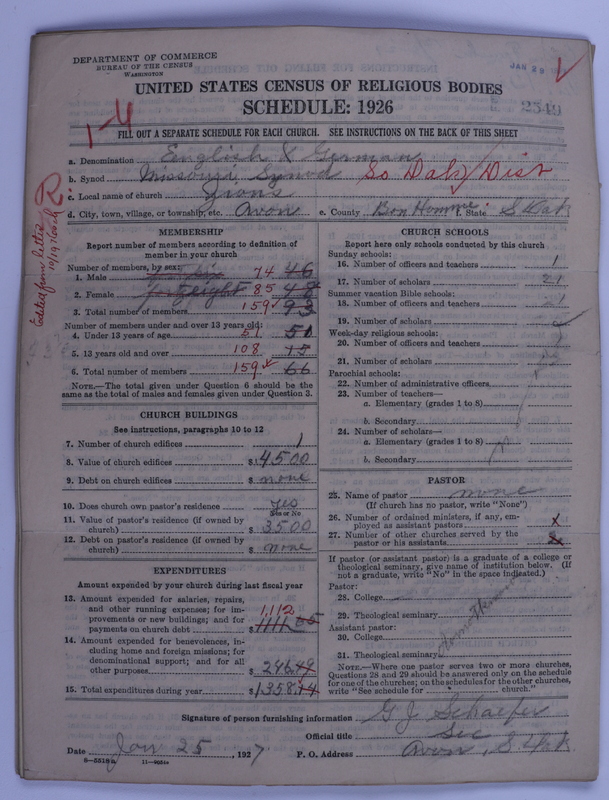 DEPARTMENT OF COMMERCE
BUREAU OF THE CENSUS
WASHINGTON
JAN 29
UNITED STATES CENSUS OF RELIGIOUS BODIES
SCHEDULE: 1926
2549
1-4
FILL OUT A SEPARATE SCHEDULE FOR EACH CHURCH. SEE INSTRUCTIONS ON THE BACK OF THIS SHEET
a. Denomination English & German
b. Synod Missouri Synod So Dak Dist
c. Local name of church Zions
d. City, town, village, or township, etc. Avon e. County Bon Homme f. State S Dak
Edited from letter 10/19/
MEMBERSHIP
Report number of members according to definition of
member in your church
Number of members, by sex:
1. Male 74 46
2. Female 85
3. Total number of members 159 93
Number of members under and over 13 years old:
4. Under 13 years of age 51 51
5. 13 years old and over 108 15
6. Total number of members 159 66
NOTE.—The total given under Question 6 should be the
same as the total of males and females given under Question 3.
CHURCH BUILDINGS
See instructions, paragraphs 10 to 12
7. Number of church edifices 1
8. Value of church edifices $ 4500
9. Debt on church edifices $ none
10. Does church own pastor's residence yes
Yes or No
11. Value of pastor's residence (if owned by
church) $ 3500
12. Debt on pastor's residence (if owned by
church) $ none
EXPENDITURES
Amount expended by your church during last fiscal year
13. Amount expended for salaries, repairs,
and other running expenses; for im-
provements or new buildings; and for
payments on church debt $ 1,112
14. Amount expended for benevolences, in-
cluding home and foreign missions; for
denominational support; and for all
other purposes $ 246.49
15. Total expenditures during year $ 1358.14
CHURCH SCHOOLS
Report here only schools conducted by this church
Sunday schools:
16. Number of officers and teachers 1
17. Number of scholars 21
Summer vacation Bible schools:
18. Number of officers and teachers
19. Number of scholars
Week-day religious schools:
20. Number of officers and teachers
21. Number of scholars
Parochial schools:
22. Number of administrative officers
23. Number of teachers—
a. Elementary (grades 1 to 8)
b. Secondary
24. Number of scholars—
a. Elementary (grades 1 to 8)
b. Secondary
PASTOR
25. Name of pastor none
(If church has no pastor, write "None")
26. Number of ordained ministers, if any, em-
ployed as assistant pastors x
27. Number of other churches served by the
pastor or his assistants
If pastor (or assistant pastor) is a graduate of a college or
theological seminary, give name of institution below. (If
not a graduate, write "No" in the space indicated.)
Pastor:
28. College
29. Theological seminary
Assistant pastor:
30. College
31. Theological seminary
NOTE.—Where one pastor serves two or more churches,
Questions 28 and 29 should be answered only on the schedule
for one of the churches; on the schedules for the other churches,
write "See schedule for church."
Signature of person furnishing information G J Schaefer
Official title Sec
Date Jan 25, 1927 P. O. Address Avon, S Dak
8—5518a 11—9054a